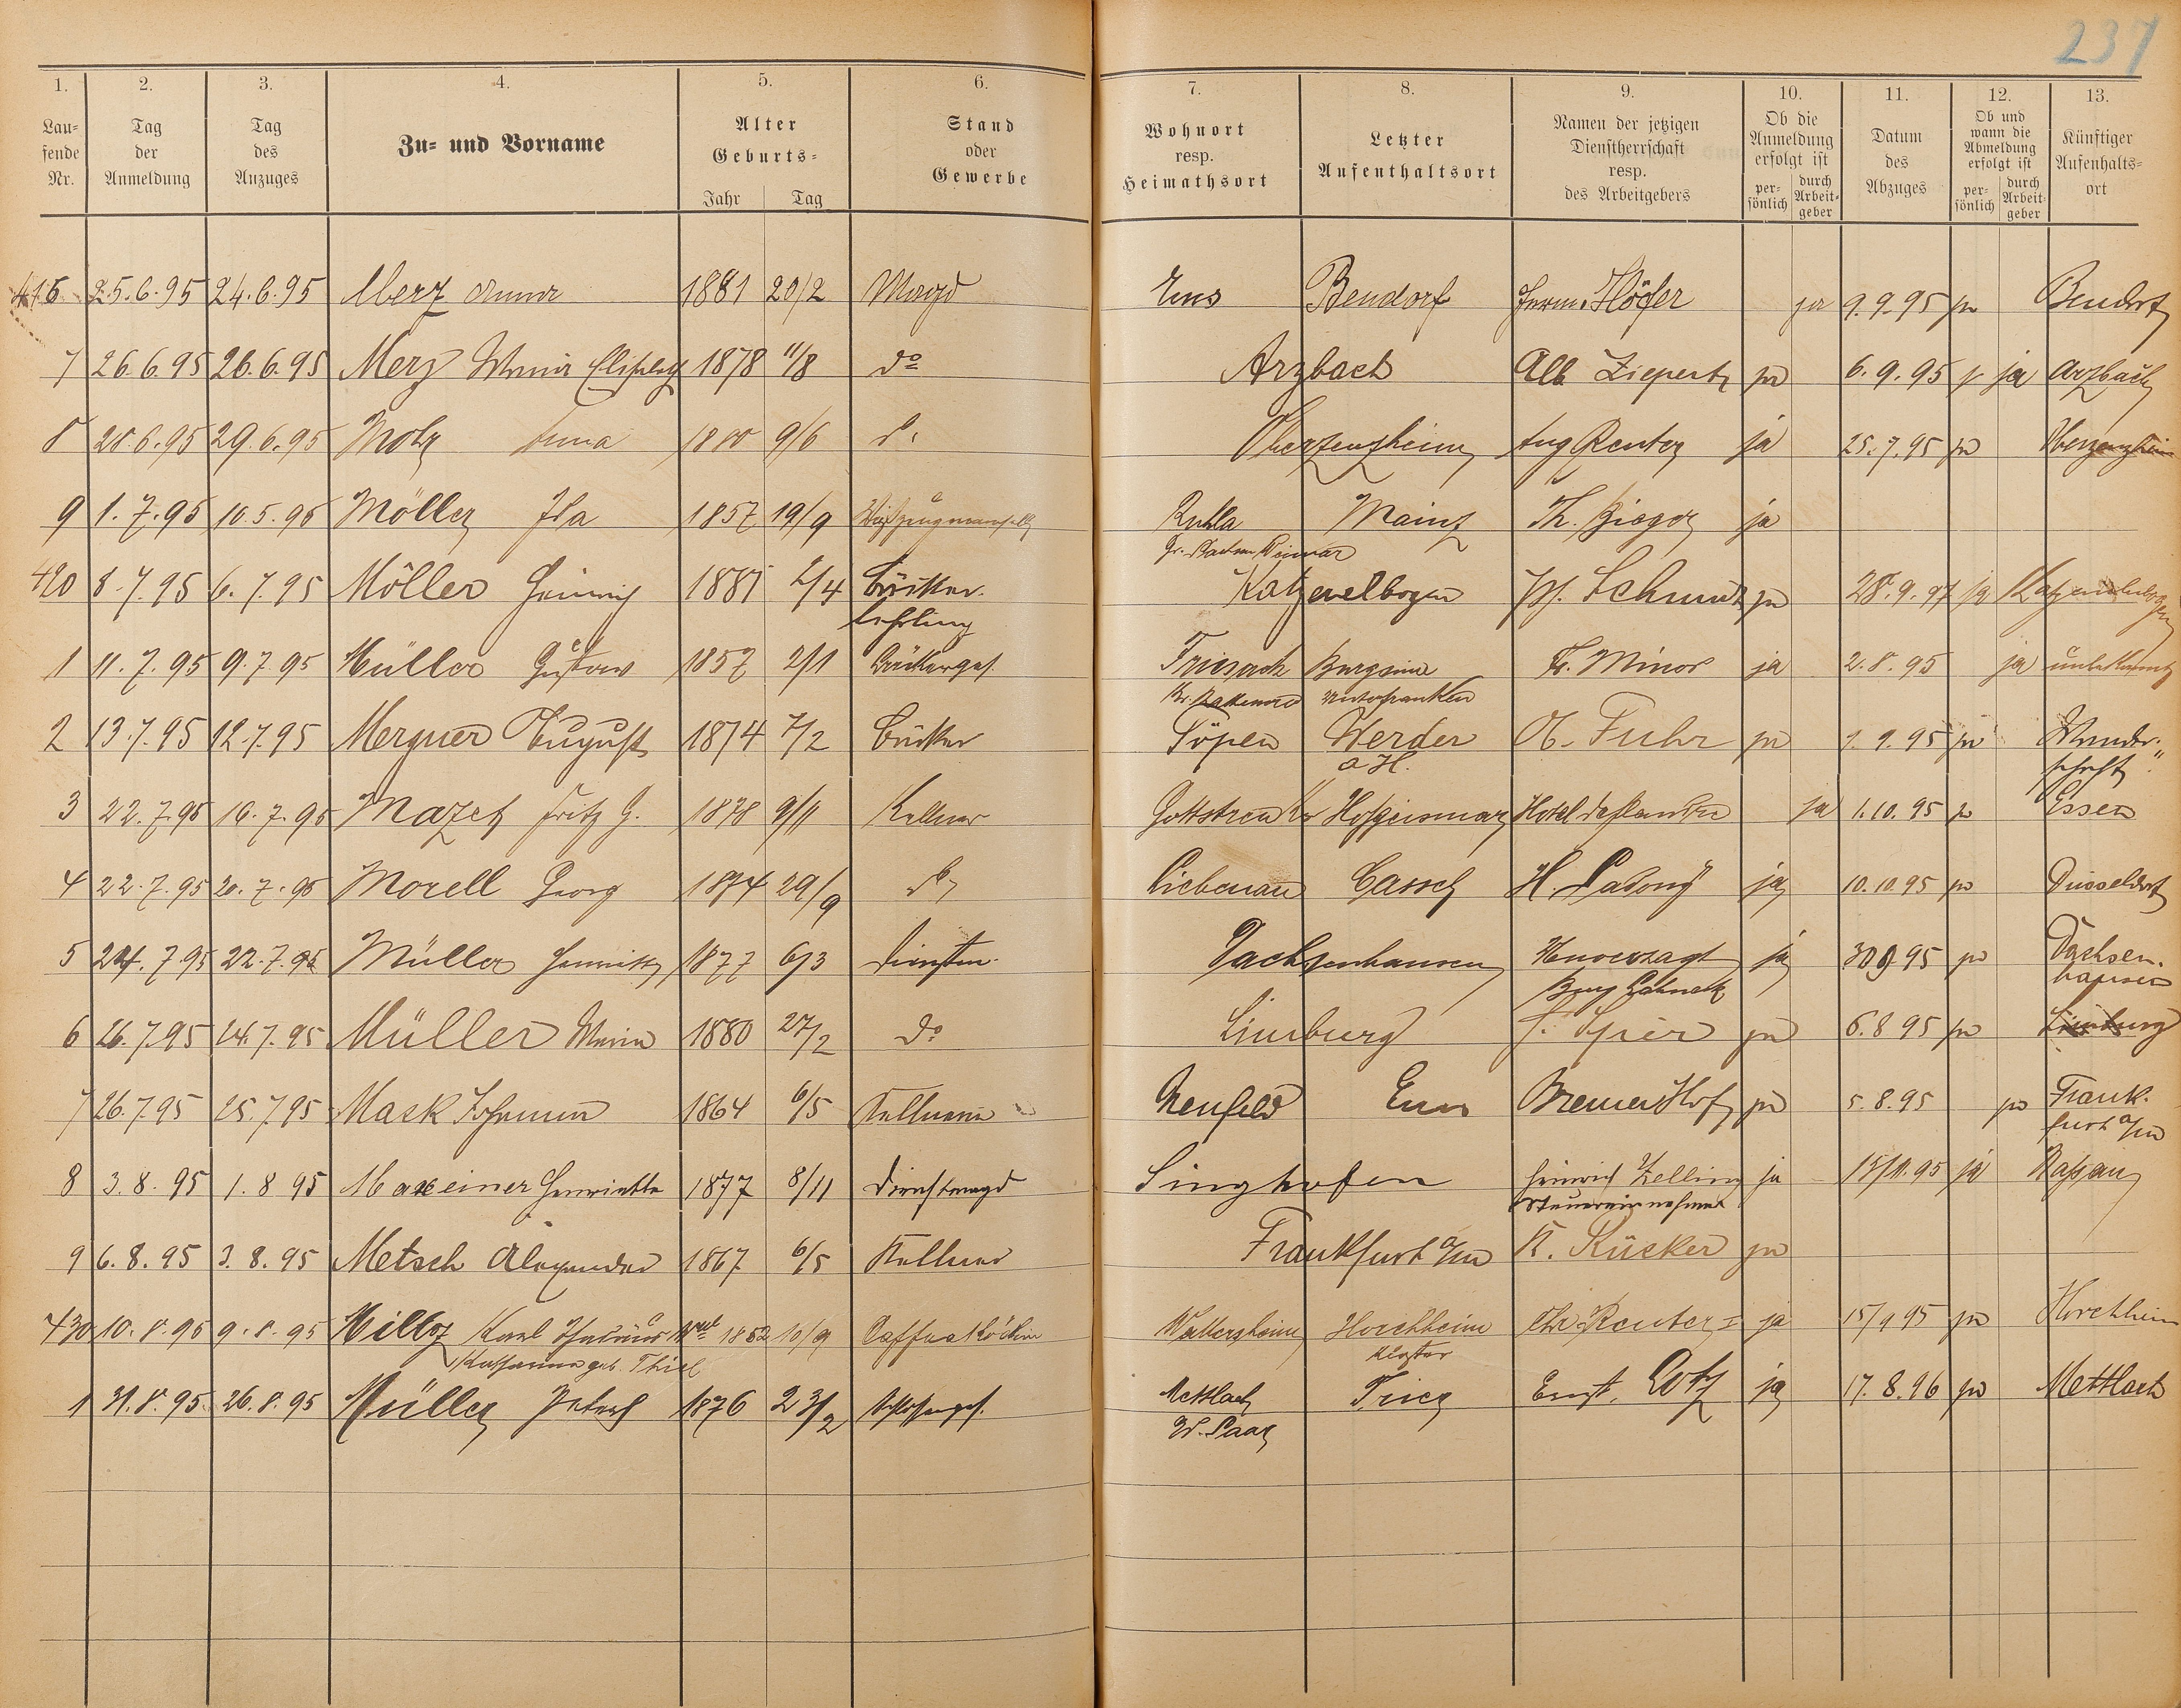 237
1. 2. 3. 4. 5. 6. 7. 8. 9. 10. 11. 12. 13.
Lau=
fende
Nr.
Tag
der
Anmeldung
Tag
des
Anzuges
Zu= und Vorname
Alter
Geburts=
Jahr Tag
Stand
oder
Gewerbe
Wohnort
resp.
Heimathsort
Letzter
Aufenthaltsort
Namen der jetzigen
Dienstherrschaft
resp.
des Arbeitgebers
Ob die
Anmeldung
erfolgt ist
per=
sönlich
durch
Arbeit=
geber
Datum
des
Abzuges
Ob und
wann die
Abmeldung
erfolgt ist
per=
sönlich
durch
Arbeit=
geber
Künftiger
Aufenhalts=
ort
416 25.6.95 24.6.95 Merz Anna 1881 20/2 Magd Ems Bendorf Höfer ja 9.9.95 ja Bendorf
7 26.6.95 26.6.95 Merz Maria 1878 11/8 do Arzbach Alb Ziepertz ja 6.9.95 ja Arzbach
8 28.6.95 29.6.95 Anna 9/6 Aug Reuter ja 25.7.95 ja
9 1.7.95 10.5.95 Möller Ida 1857 19/9 Ruhla Mainz Th. ja
Weimar
420 8.7.95 6.7.95 Möller Heinrich 1881 2/4 Bäcker. Katzenelbogen ja 28.9.97 ja Katzenelnbogen
lehrling
1 11.7.95 9.7.95 Müller Gustav 1857 2/1 Bäckerges. Friesack Burgsinn Fr. Minor ja 2.8.95 ja unbekannt
Unterfranken
2 13.7.95 12.7.95 Mergner August 1874 7/2 Bäcker Töpen Werder Fuhr ja 1.9.95 ja Wander.
a H. schaft
3 22.7.95 16.7.95 Fritz G. 1878 9/11 Kellner Gottstreu Hofgeismar Hotel ja 1.10.95 ja Essen
4 22.7.95 20.7.95 Morell Georg 1874 29/9 do Liebenau Cassel H. ja 10.10.95 ja Düsseldorf
5 24.7.95 22.7.95 Müller 1877 6/3 Dachsenhausen ja 30.9.95 ja Dachsen.
Burg Lahneck hausen
6 26.7.95 24.7.95 Müller Maria 1880 27/2 do Limburg ja 6.8.95 ja Limburg
7 26.7.95 25.7.95 Mack Johann 1864 6/5 Neufeld Ems Bremer Hof ja 5.8.95 ja Frank.
furt a/M
8 3.8.95 1.8 95 Maxeiner Henriette 1877 8/11 Dienstmagd Singhofen Heinrich Zelling ja 15/11.95 ja Nassau
Steuereinnehmer
9 6.8.95 3.8.95 Metsch Alexander 1867 6/5 Kellner Frankfurt a/M K. Rücker ja
430 10.8.95 9.8.95 Karl 1852 10/9 Kaffeeköchin Wallersheim Horchheim Chr Reuter I ja 15/9 95 ja Horchheim
Katharina geb. Thiel Kloster
1 31.8.95 26.8.95 Müller Peter 1876 23/2 Schlosserges. Mettlach Trier Ernst. Lotz ja 17.8.96 ja Mettlach
Saar